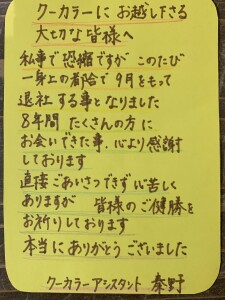 クーカラーに お越し下さる
大切な皆様へ
私事で恐縮ですが このたび
一身上の都合で 9月をもって
退社する事となりました
8年間 たくさんの方に
お会いできた事、心より感謝
しております
直接ごあいさつできず心苦しく
ありますが 皆様のご健勝を
お祈りしております
本当にありがとうございました
クーカラーアシスタント 秦野